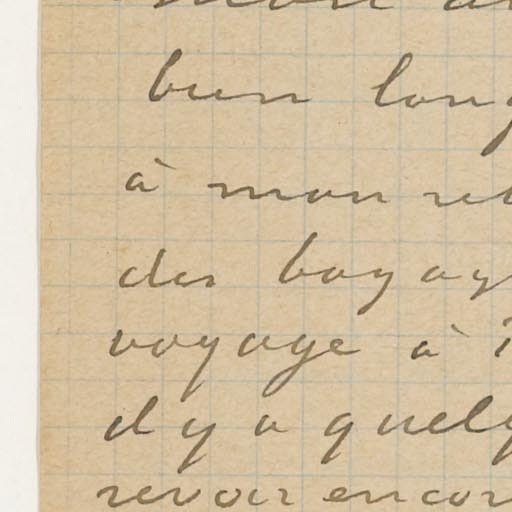 bien long
à mon ret
des voyag
voyage à
il y a quelq
revoir encor